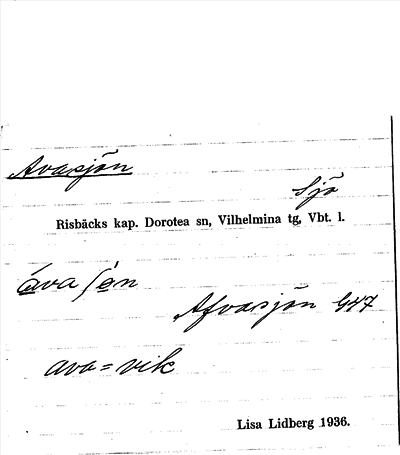 Avasjön
Sjö
Risbäcks kap. Dorotea sn, Vilhelmina tg, Vbt. l.
áva ʃön
Afvasjön G47
ava = vik
Lisa Lidberg 1936.